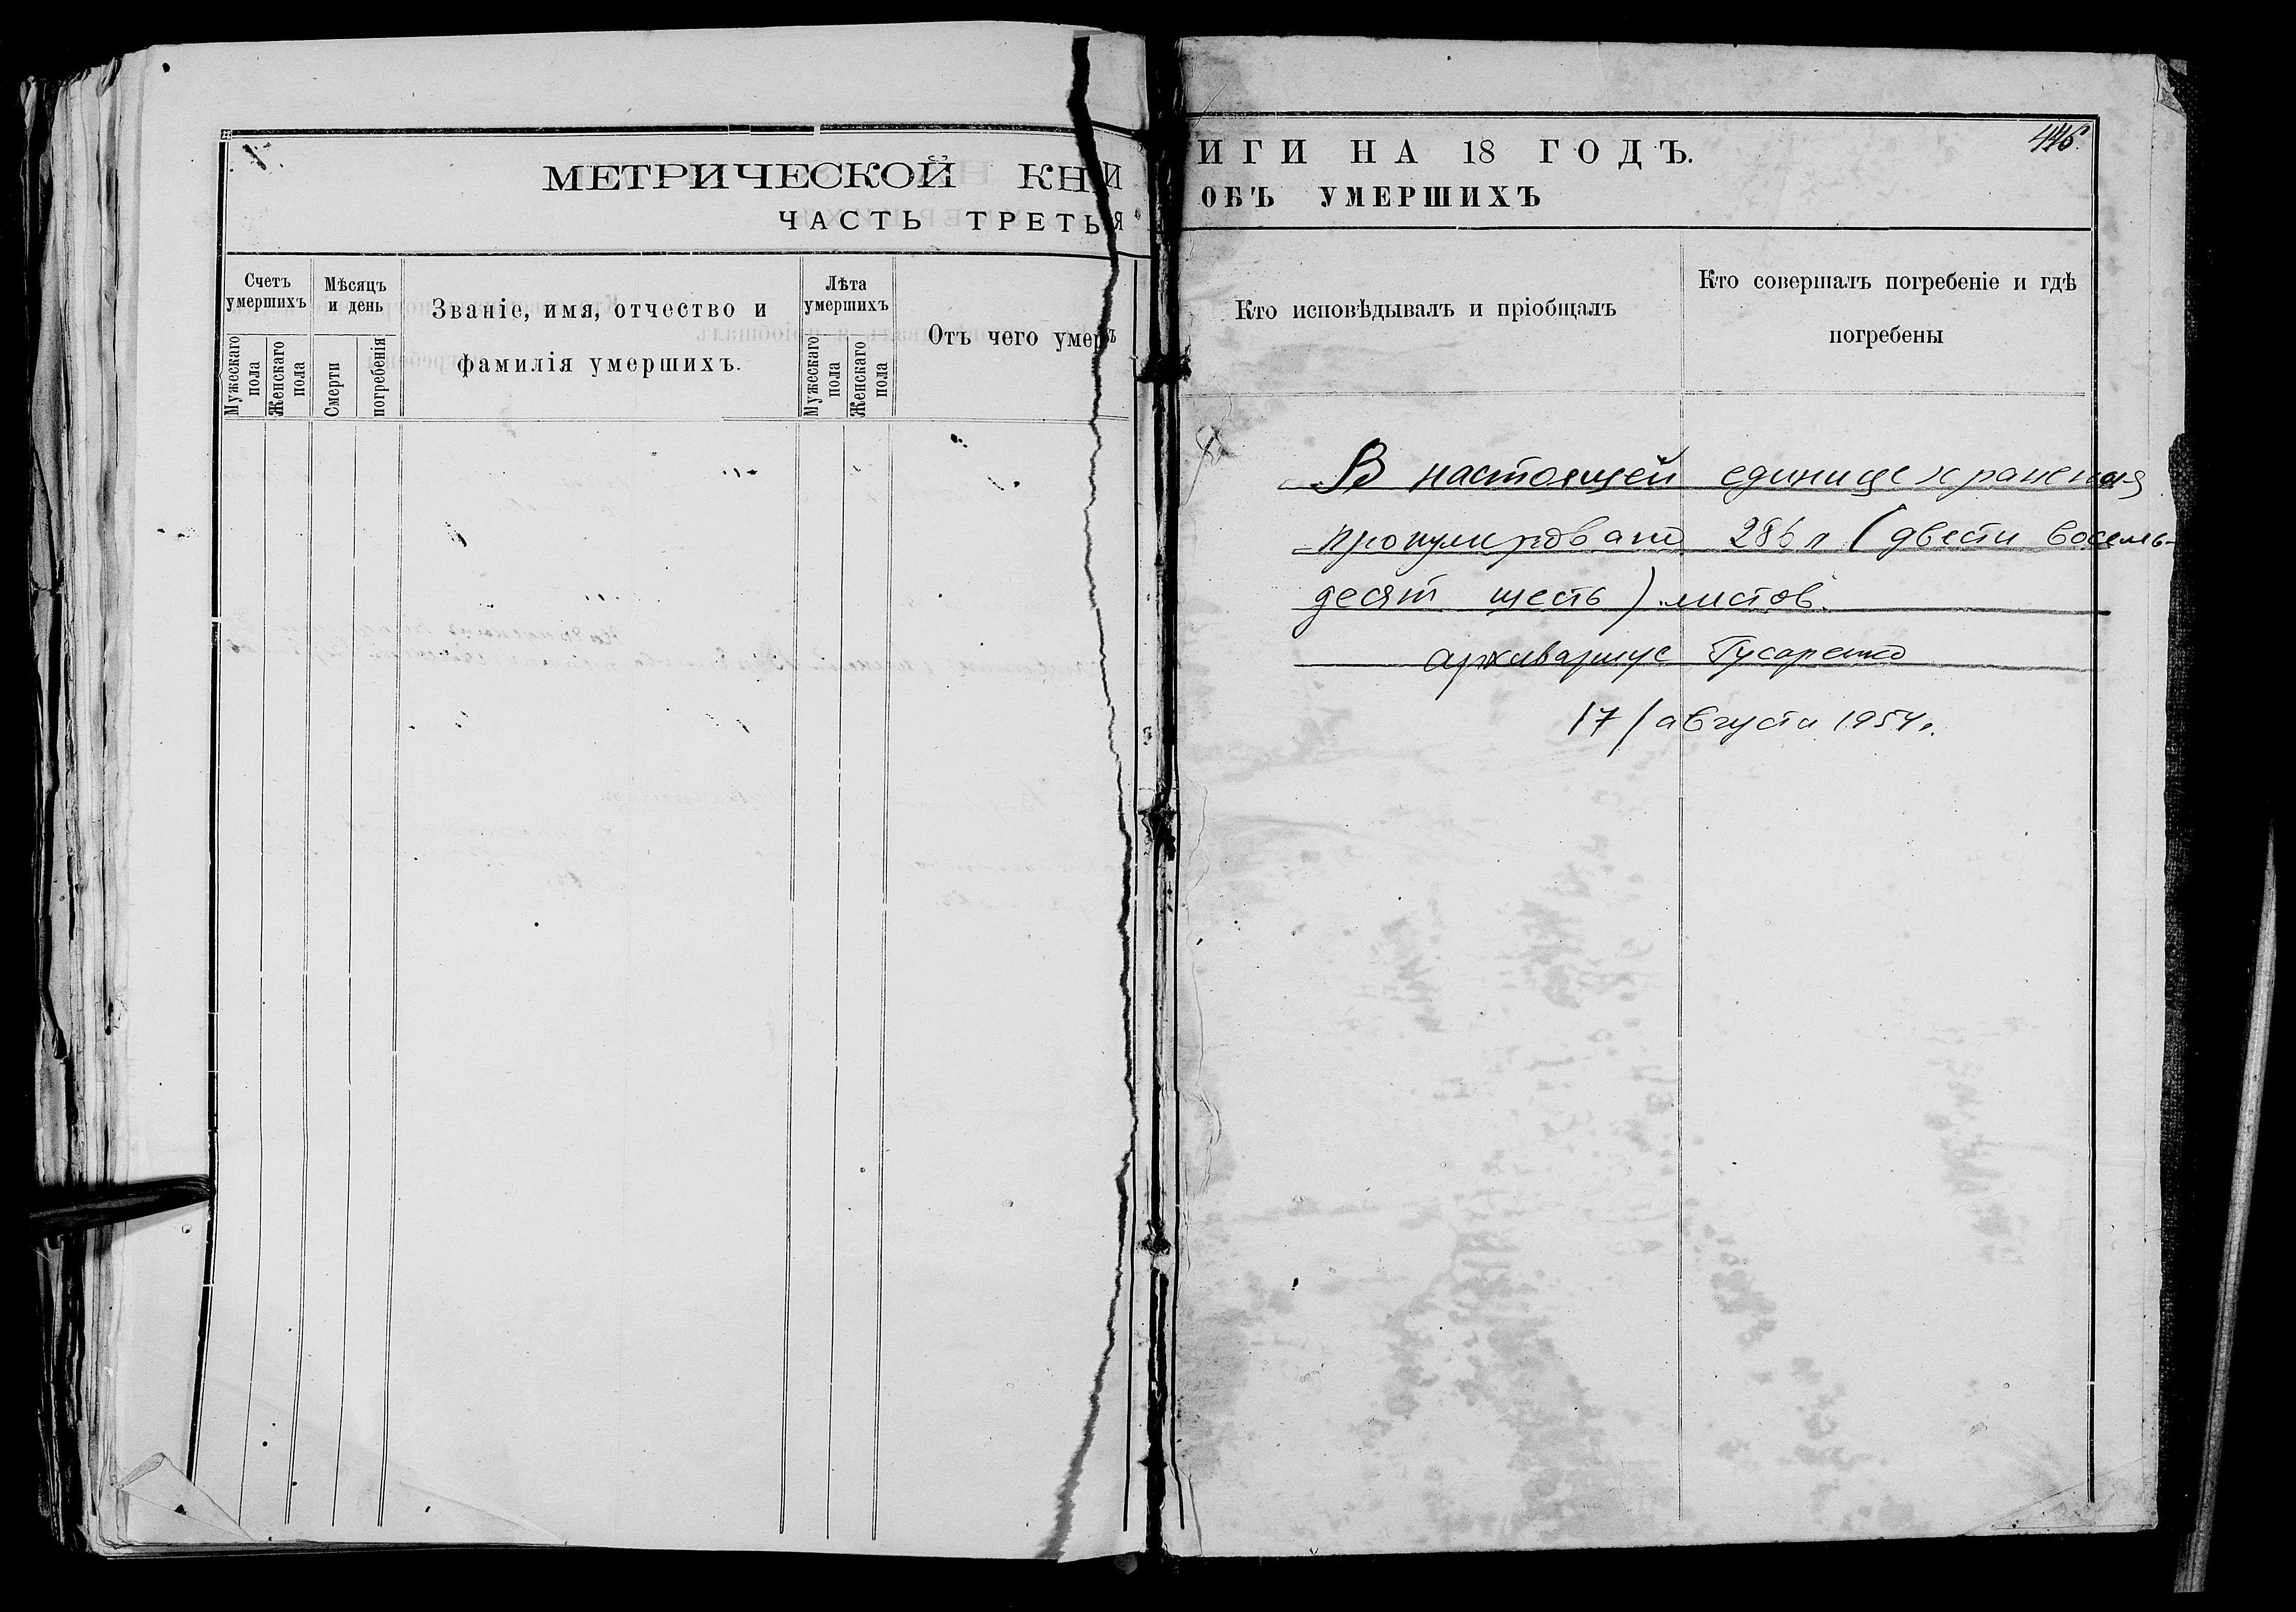 МЕТРИЧЕСКОЙ КНИ
ЧАСТЬ ТРЕТЬЯ
Счетъ умершихъ
Мужескаго пола
Женскаго пола
Мѣсяцъ и день
Смерти
погребенія
Званіе, имя, отчество и
фамилія умершихъ.
Лѣта умершихъ
Мужескаго пола
Женскаго пола
Отъ чего умеръ
ИГИ НА 18 ГОДЪ.
ОБЪ УМЕРШИХЪ
Кто исповѣдывалъ и пріобщалъ
Кто совершалъ погребеніе и гдѣ
погребены
В настоящей единице хранения
пронумеровано 286 л (двести восемь-
десят шесть) листов.
архивариус Гусаренко
17/августа 1954г.